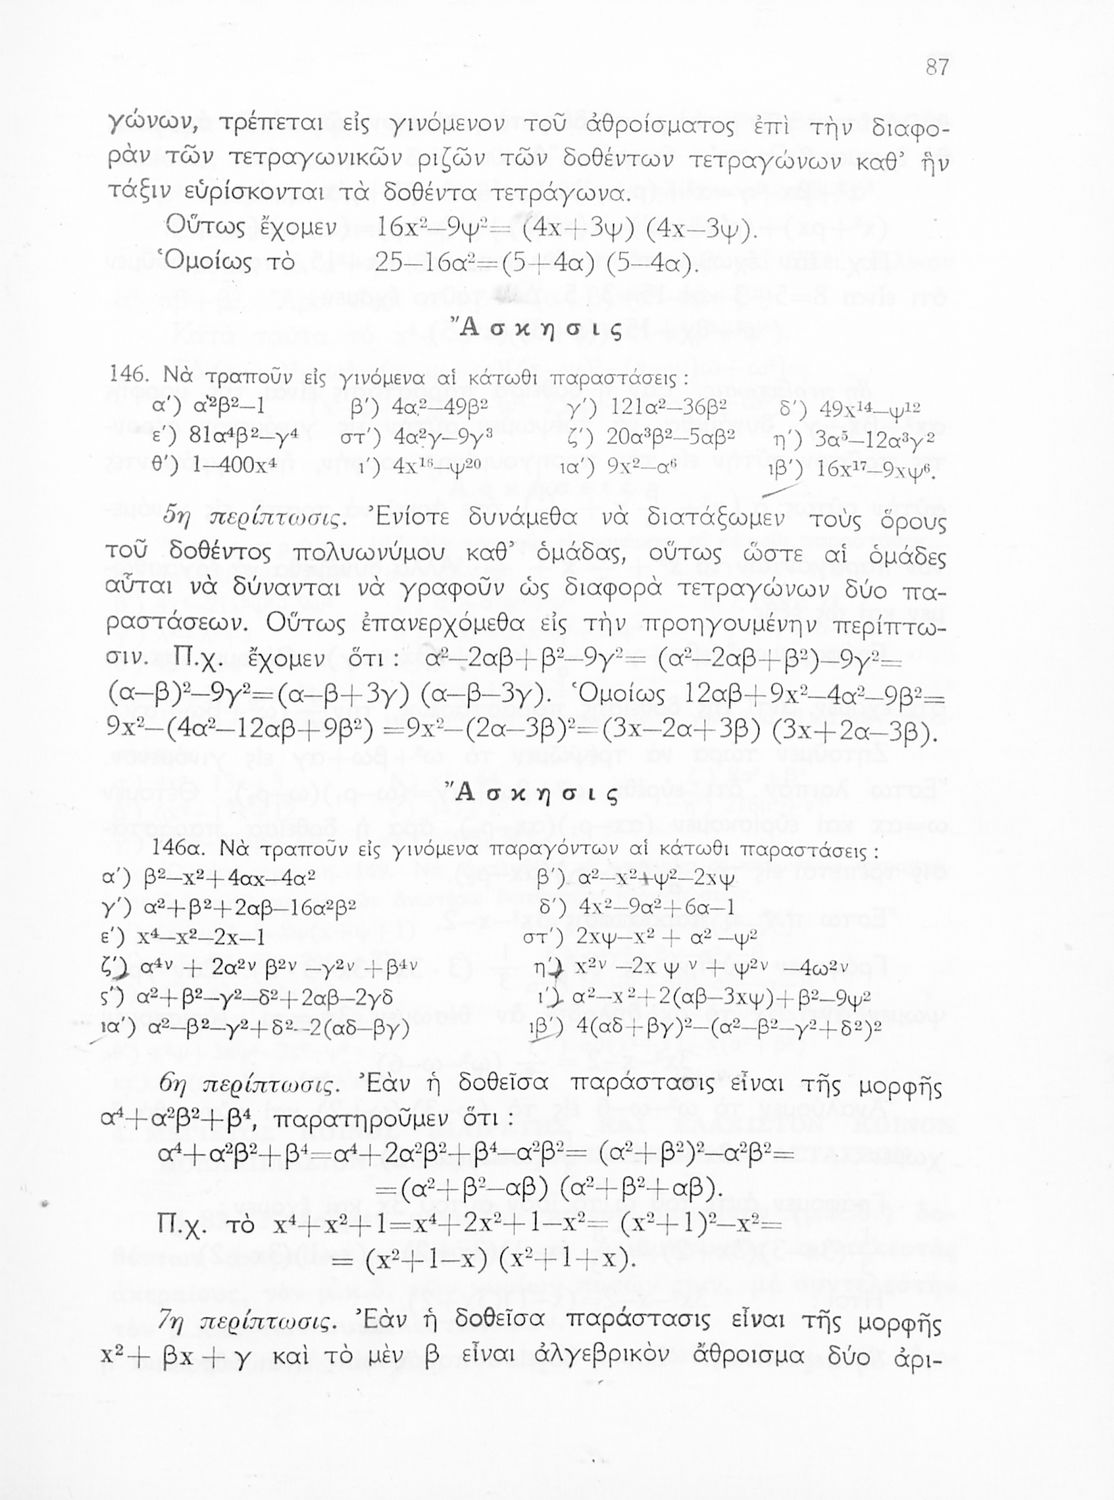 87
γώνων, τρέπεται εἰς γινόμενον τοῦ ἀθροίσματος ἐπὶ τὴν διαφο-
ρὰν τῶν τετραγωνικῶν ριζῶν τῶν δοθέντων τετραγώνων καθ’ ἣν
τάξιν εὑρίσκονται τὰ δοθέντα τετράγωνα.
Οὕτως ἔχομεν 16x²—9ψ²= (4x+3ψ) (4x—3ψ).
Ὁμοίως τὸ 25—16α²=(5+4α) (5—4α).
Ἄσκησις
146. Νὰ τραποῦν εἰς γινόμενα αἱ κάτωθι παραστάσεις :
α′) α²β²—1 β′) 4α²—49β² γ′) 121α²—36β² δ′) 49x¹⁴—ψ¹²
ε′) 81α⁴β²—γ⁴ στ′) 4α²γ—9γ³ ζ′) 20α³β²—5αβ² η′) 3α⁵—12α³γ²
θ′) 1—400x⁴ ι′) 4x¹⁶—ψ²⁰ ια′) 9x²—α⁶ ιβ′) 16x¹⁷—9xψ⁶.
5η περίπτωσις. Ἐνίοτε δυνάμεθα νὰ διατάξωμεν τοὺς ὅρους
τοῦ δοθέντος πολυωνύμου καθ’ ὁμάδας, οὕτως ὥστε αἱ ὁμάδες
αὗται νὰ δύνανται νὰ γραφοῦν ὡς διαφορὰ τετραγώνων δύο πα-
ραστάσεων. Οὕτως ἐπανερχόμεθα εἰς τὴν προηγουμένην περίπτω-
σιν. Π.χ. ἔχομεν ὅτι : α²—2αβ+β²—9γ²= (α²—2αβ+β²)—9γ²=
(α—β)²—9γ²=(α—β+3γ) (α—β—3γ). Ὁμοίως 12αβ+9x²—4α²—9β²=
9x²—(4α²—12αβ+9β²) =9x²—(2α—3β)²=(3x—2α+3β) (3x+2α—3β).
Ἄσκησις
146α. Νὰ τραποῦν εἰς γινόμενα παραγόντων αἱ κάτωθι παραστάσεις :
α′) β²—x²+4αx—4α² β′) α²—x²+ψ²—2xψ
γ′) α²+β²+2αβ—16α²β² δ′) 4x²—9α²+6α—1
ε′) x⁴—x²—2x—1 στ′) 2xψ—x² + α²—ψ²
ζ′) α⁴ᵛ + 2α²ᵛ β²ᵛ —γ²ᵛ +β⁴ᵛ η′) x²ᵛ —2x ψ ᵛ + ψ²ᵛ —4ω²ᵛ
ς′) α²+β²—γ²—δ²+2αβ—2γδ ι′) α²—x²+2(αβ—3xψ)+β²—9ψ²
ια′) α²—β²—γ²+δ²-2(αδ—βγ) ιβ′) 4(αδ+βγ)²—(α²—β²—γ²+δ²)²
6η περίπτωσις. Ἐὰν ἡ δοθεῖσα παράστασις εἶναι τῆς μορφῆς
α⁴+α²β²+β⁴, παρατηροῦμεν ὅτι :
α⁴+α²β²+β⁴=α⁴+2α²β²+β⁴—α²β²= (α²+β²)²—α²β²=
=(α²+β²—αβ) (α²+β²+αβ).
Π.χ. τὸ x⁴+x²+1=x⁴+2x²+1—x²= (x²+1)²—x²=
= (x²+1—x) (x²+1+x).
7η περίπτωσις. Ἐὰν ἡ δοθεῖσα παράστασις εἶναι τῆς μορφῆς
x²+ βx + γ καὶ τὸ μὲν β εἶναι ἀλγεβρικὸν ἄθροισμα δύο ἀρι-